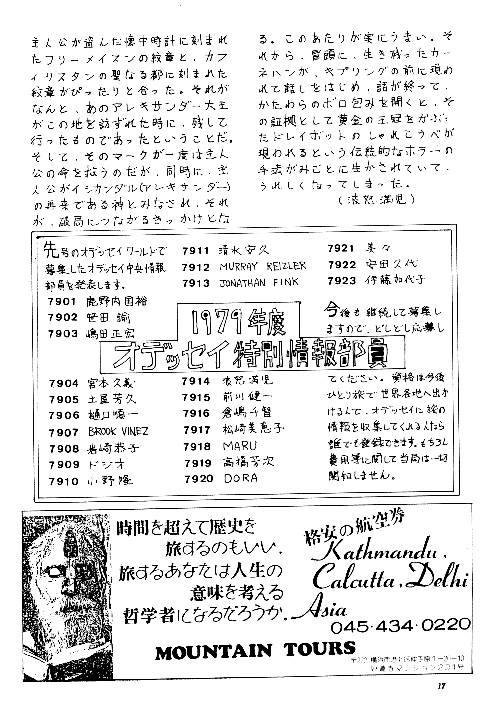 る。このあたりが実にうまい。そ
れから、冒頭に、生き残ったカー
ネハンが、キプリングの前に現わ
れて話しをはじめ、話が終って、
かたわらのボロ包みを開くと、そ
の証拠として黄金の王冠をかぶっ
たドレイボットのしゃれこうべが
現われるという伝統的なホラーの
手法がみごとに生かされていて、
うれしくなってしまった。
主人公が盗んだ懐中時計に刻まれ
たフリーメイスンの紋章と、カフ
ィリスタンの聖なる都に刻まれた
紋章がぴったりと合った。それが
なんと、あのアレキサンダー大王
がこの地を訪ずれた時に、残して
行ったものであったということだ。
そして、そのマークが一度は主人
公の命を救うのだが、同時に、主
人公がイシカンダル(アレキサンダー)
の再来である神とみなされ、それ
が、破局につながるきっかけとな
先号のオデッセイワールドで
募集したオデッセイ中央情報
部員を発表します。
1979年度
オデッセイ特別情報部員
7901 鹿野内国裕
7902 世田 諭
7903 嶋田正宏
7904 宮本久義
7905 土屋芳久
7906 樋口順一
7907 BROOK VINEZ
7908 岩崎恭子
7909 ドジオ
7910 小野隆
7911 清水安久
7912 MURRAY REIZLER
7913 JONATHAN FINK
7914
7915 前川健一
7916 倉嶋千智
7917 松崎美恵子
7918 MARU
7919 高橋芳次
7920 DORA
7921 美々
7922 安田久代
7923 伊藤加代子
今後も継続して募集し
ますので、どしどし応募し
てください。資格は今後
ひとり旅で世界各地へ出か
ける人で、オデッセイに旅の
情報を収集してくれる人なら
誰でも登録できます。もちろん
費用等に関して当局は一切
関知しません。
時間を超えて歴史を
旅するのもいい。
旅するあなたは人生の
意味を考える
哲学者になるだろうか。
格安の航空券
Kathmandu.
Calcutta. Delhi
Asia
045-434-0220
MOUNTAIN TOURS
17